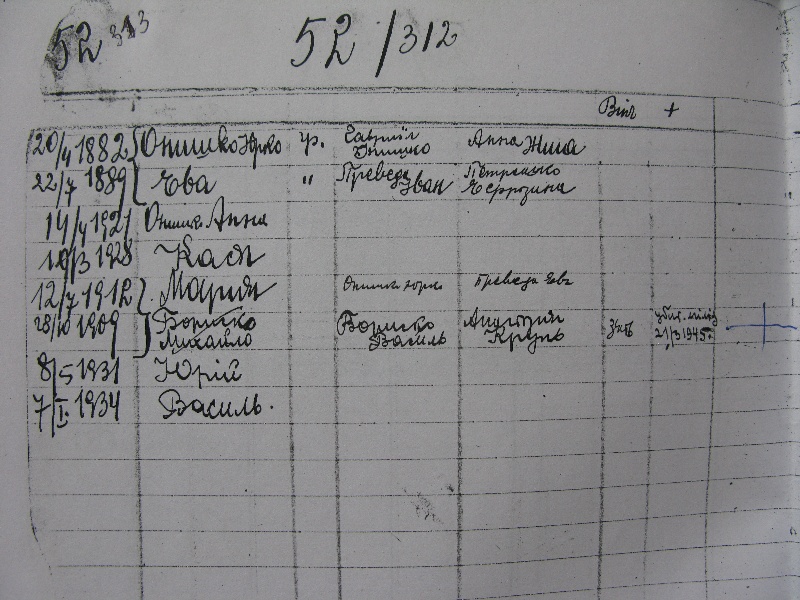 52 313 52/312
Вінч +
20/4 1882 Онишко Юрко гр. Гавриїл Онишко Анна Жила
22/7 1889 Єва " Преведа Іван Петрашко Єфрозина
14/4 1921 Онишко Анна
1928 Кася
12/7 1912 Мария Онишко Юрко Преведа Єва
28/10 1909 Бориско Михайло Бориско Василь Анастазия 21/3 1945
8/5 1931 Юрій
7/I 1934 Василь.